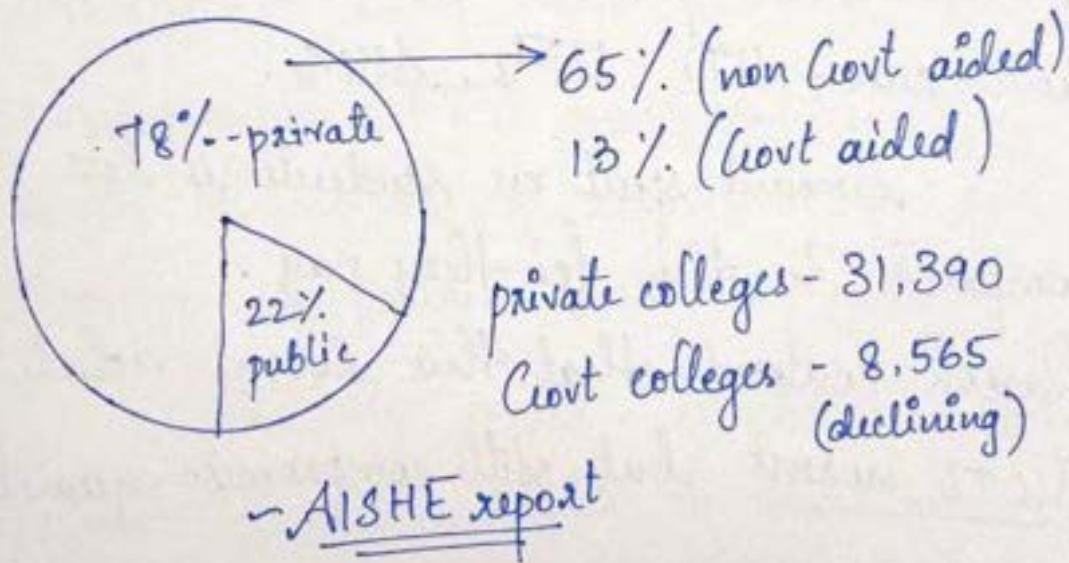 78% - private
22%
public
65% (non Govt aided)
13% (Govt aided)
private colleges - 31,390
Govt colleges - 8,565
(declining)
- AISHE report